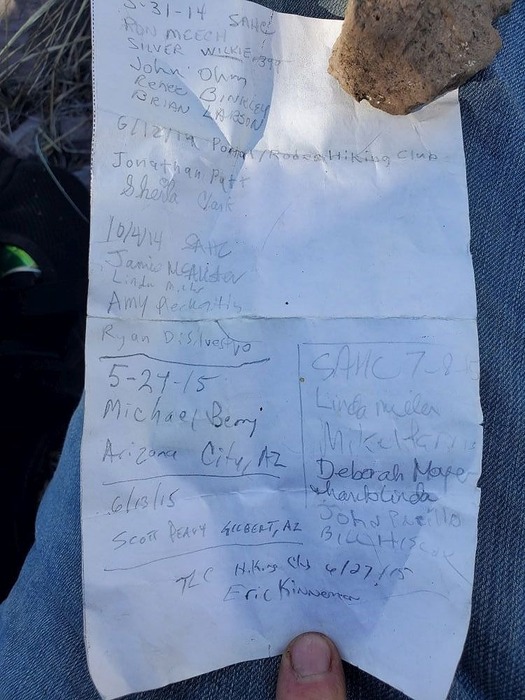 5-31-14 SAHC
RON MEECH
SILVER WILKIE
John Ohm
Renee BINKLEY
BRIAN LARSON
6/12/14 Portal/Rodeo Hiking Club
Jonathan Patt
Sheila Clark
10/4/14 SAHC
Jamie McAlister
Linda
Amy
Ryan DiSilvestro
5-24-15
Michael Berry
Arizona City, AZ
6/13/15
SCOTT PEAVY GILBERT, AZ
TLC Hiking Club 6/27/15
Eric Kinneman
SAHC 7-8
Linda
Mike
Deborah
thanks Linda
John
Bill